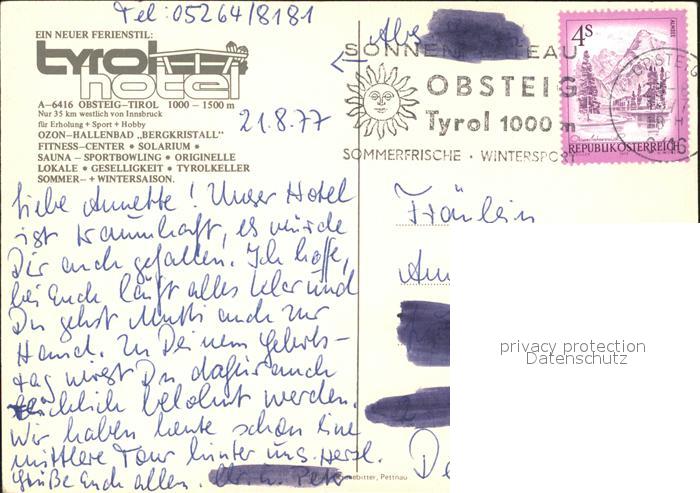 Tel: 05264/8181
EIN NEUER FERIENSTIL:
tyrol
hotel
A-6416 OBSTEIG-TIROL 1000 – 1500 m
Nur 35 km westlich von Innsbruck
für Erholung + Sport + Hobby
OZON-HALLENBAD „BERGKRISTALL“
FITNESS-CENTER • SOLARIUM •
SAUNA – SPORTBOWLING • ORIGINELLE
LOKALE • GESELLIGKEIT • TYROLKELLER
SOMMER- + WINTERSAISON.
21.8.77
Liebe Annette! Unser Hotel
ist traumhaft, es würde
Dir auch gefallen. Ich hoffe,
bei Euch läuft alles klar und
Du gehst Mutti auch zur
Hand. Zu Deinem Geburts-
tag wirst Du dafür auch
belohnt werden.
Wir haben heute schon eine
mittlere Tour hinter uns. Herzl.
Grüße Euch allen.
Abs
OBSTEIG
Tyrol 1000 m
SOMMERFRISCHE · WINTERSPORT
4S
REPUBLIK ÖSTERREICH
Fräulein
privacy protection
Datenschutz
Pettnau